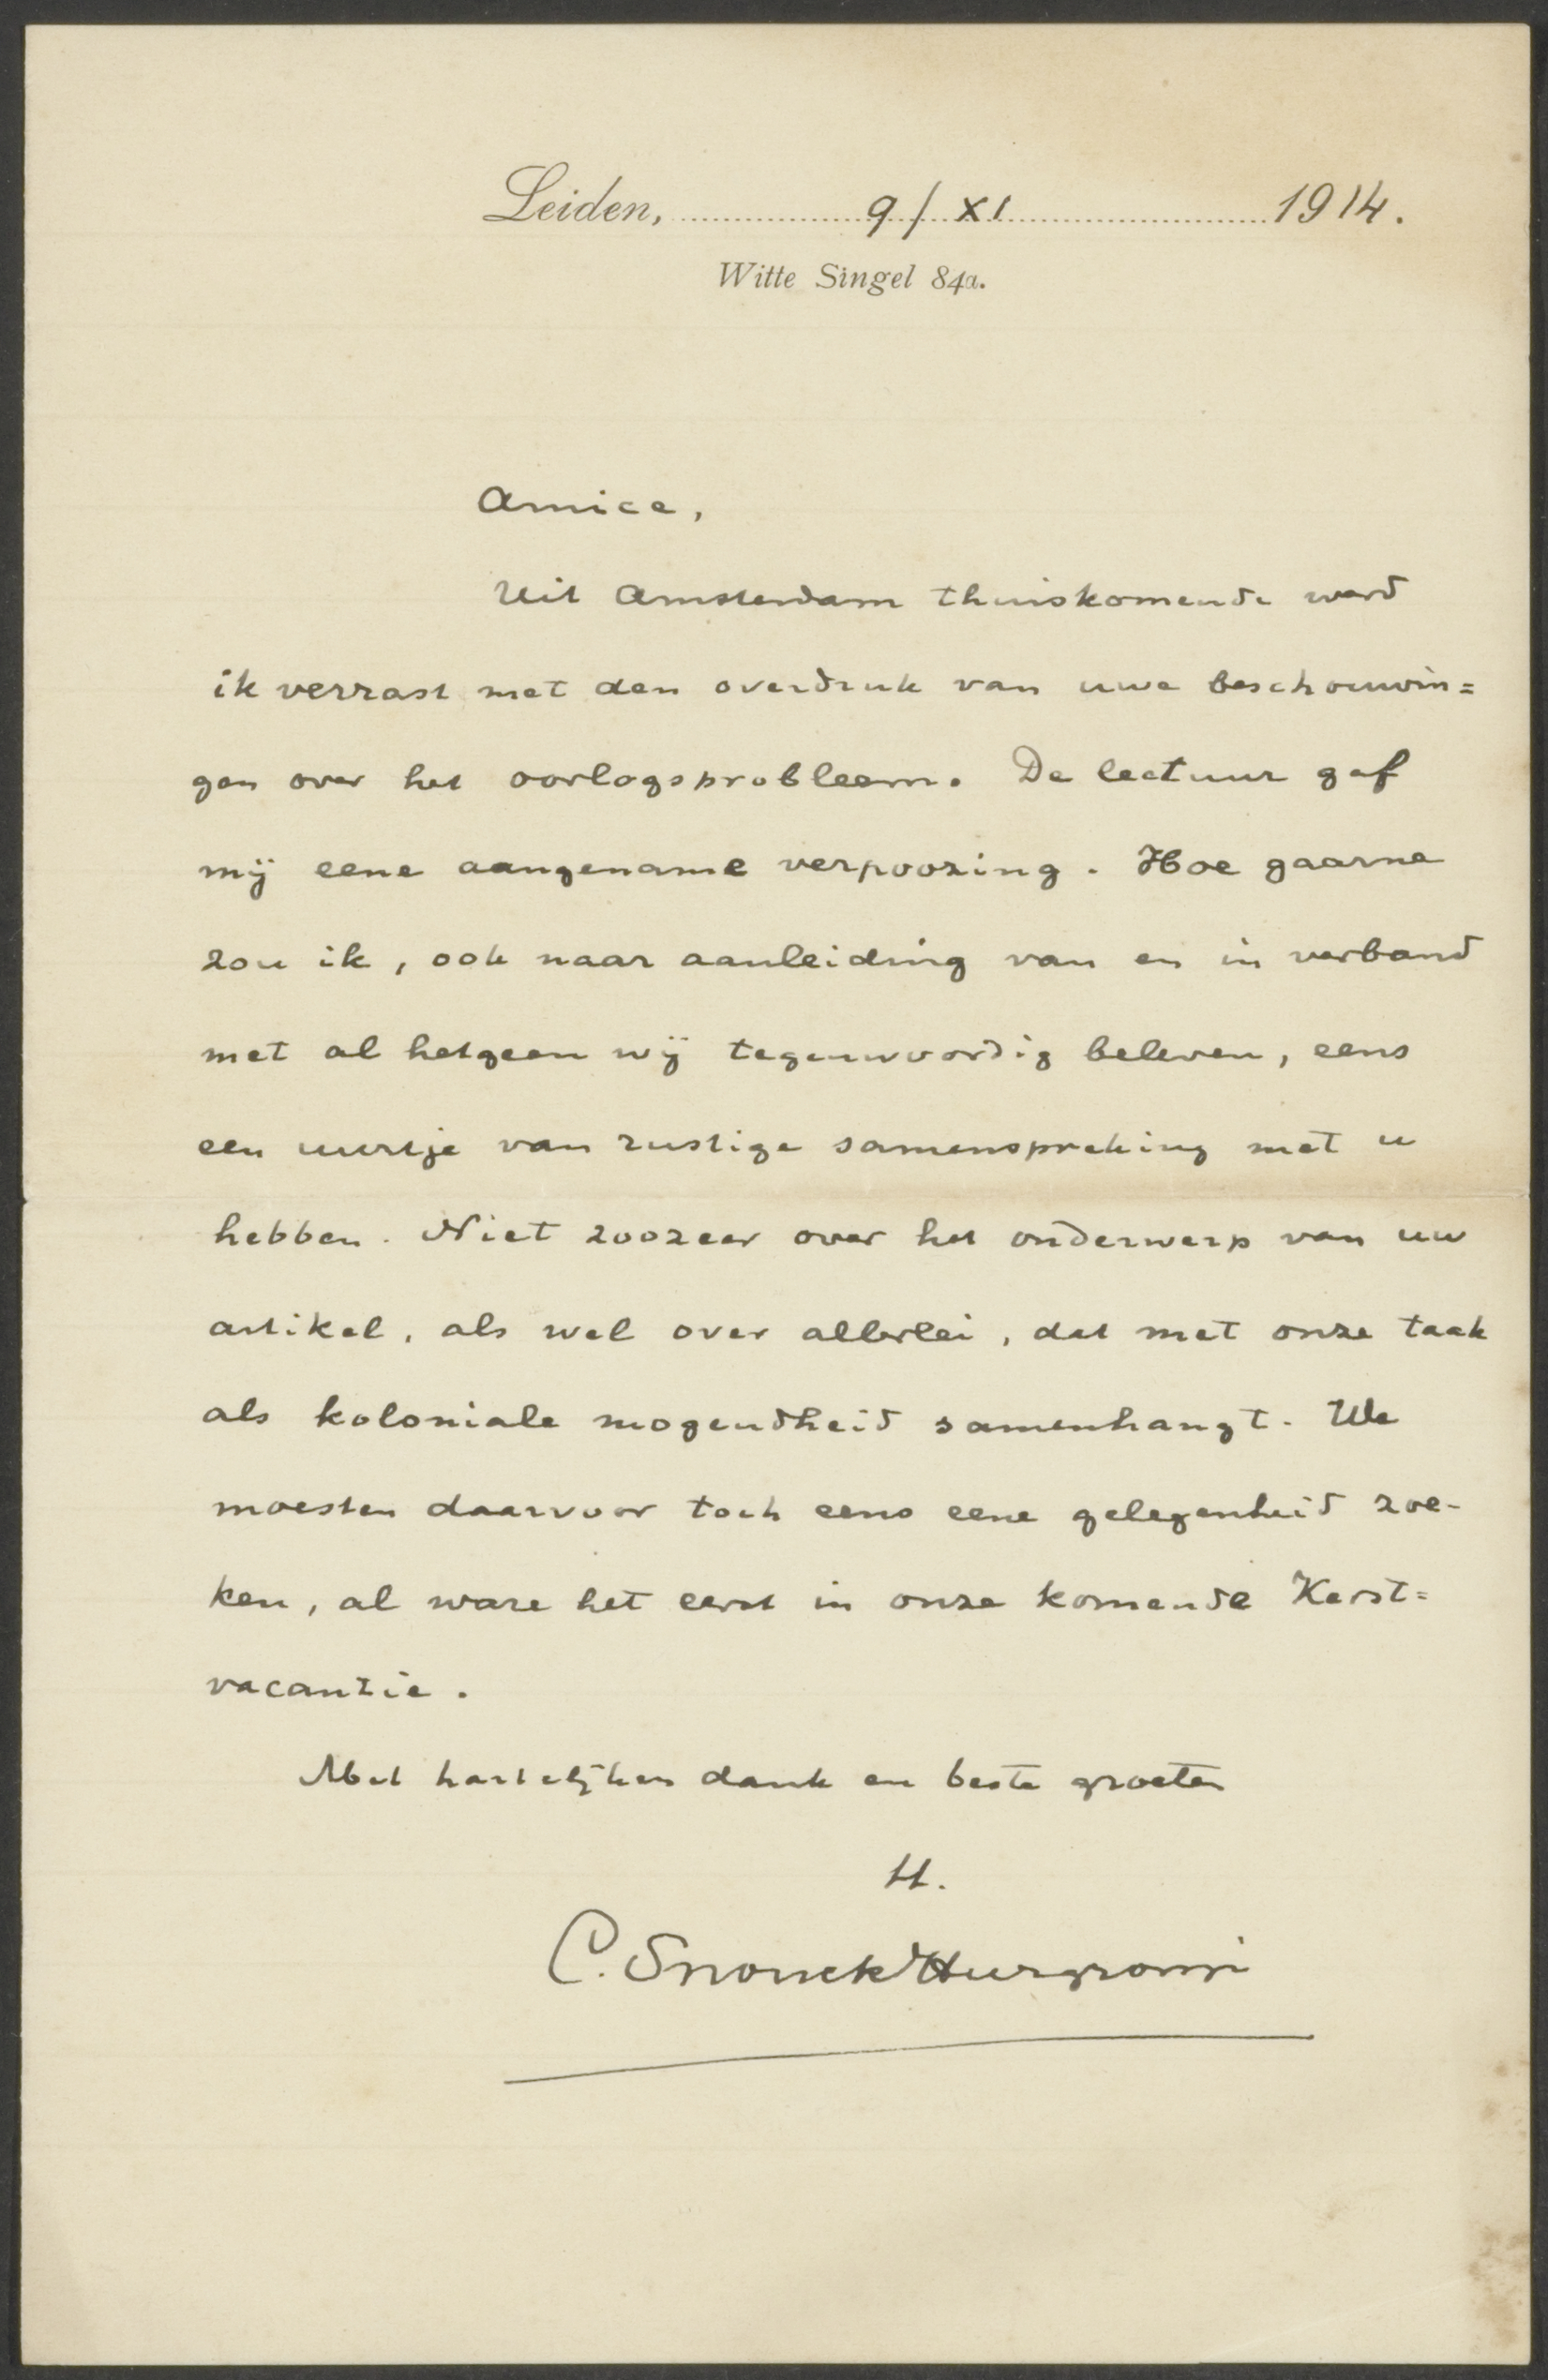 Leiden, 9/XI 1914.
Witte Singel 84a.
Amice,
Uit Amsterdam thuiskomende werd
ik verrast met den overdruk van uwe beschouwin=
gen over het oorlogsprobleem. De lectuur gaf
mij eene aangename verpoozing. Hoe gaarne
zou ik, ook naar aanleiding van en in verband
met al hetgeen wij tegenwoordig beleven, eens
een uurtje van rustige samenspreking met u
hebben. Niet zoozeer over het onderwerp van uw
artikel, als wel over allerlei, dat met onze taak
als koloniale mogendheid samenhangt. We
moesten daarvoor toch eens eene gelegenheid zoe-
ken, al ware het eerst in onze komende Kerst=
vacantie.
Met hartelijken dank en beste groeten
tt.
C. Snouck Hurgronje